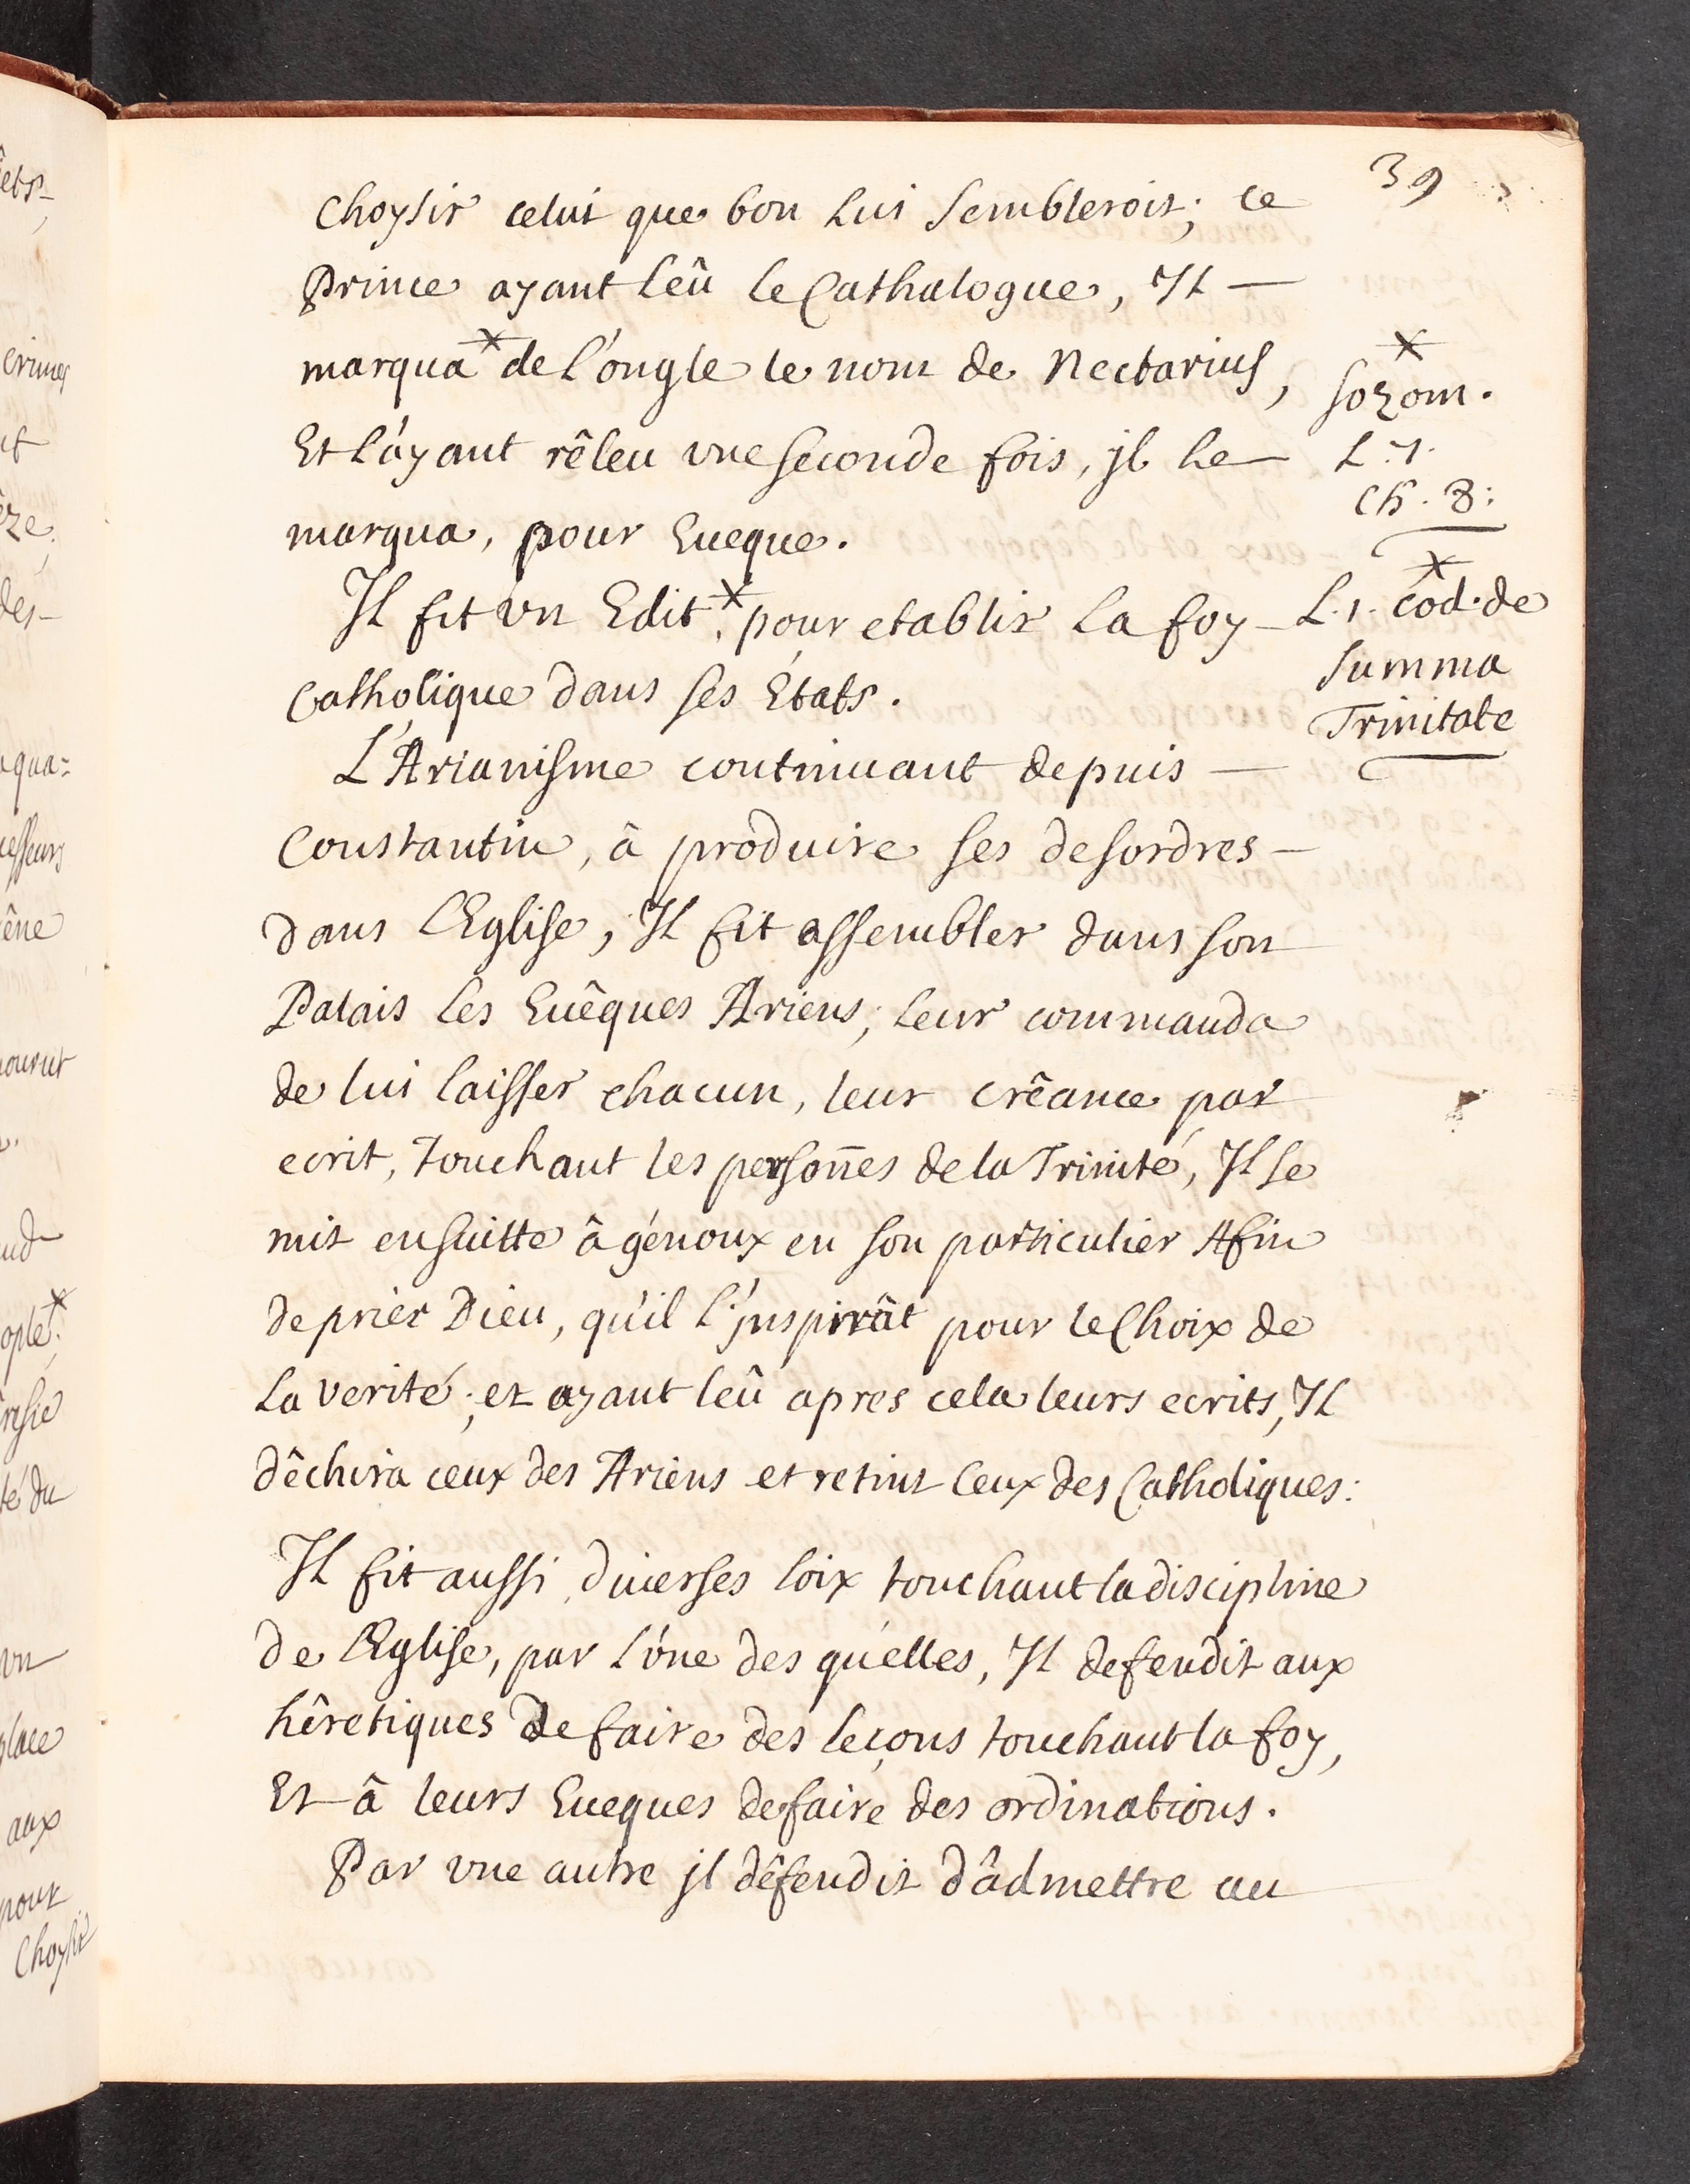 39
Choysir celui que bon Lui Sembleroit; ce
Prince ayant leû le Cathalogue, Il —
marqua* de l'ongle le nom de Nectarius,
Et l'ayant rêleu vne seconde fois, jl le —
marqua, pour Eueque.
Il fit vn Edit*, pour etablir La foy —
Catholique dans ses États.
L'Arianisme continuant depuis —
Constantin, â produire ses desordres —
dans l'Eglise, Il fit assembler dans son
Palais Les Euêques Ariens; Leur commanda
de lui laisser chacun, leur crêance par
ecrit, Touchant les persoñes de la Trinité, Il se
mit ensuitte â génoux en son particulier Afin
de prier Dieu, qu'il l'jnspirât pour le Choix de
La verité; et ayant leû apres cela leurs ecrits, Il
dêchira ceux des Ariens et retint Ceux des Catholiques:
Il fit aussi diuerses loix touchant la discipline
de l'Eglise, par l'vne des qu'elles, Il defendit aux
hêretiques de faire des leçons touchant la foy,
Et â leurs Eueques de faire des ordinations.
Par vne autre jl dêfendit d'âdmettre au
*
Sozom.
L. 7.
Ch. 8:
*
L. 1. Cod. de
Summa
Trinitate
êts —
crimes
êze
des —
aqua=
esseurs
ême
mourut
ople*.
rêsie
té du
vn
place
aux
pour
Choysir